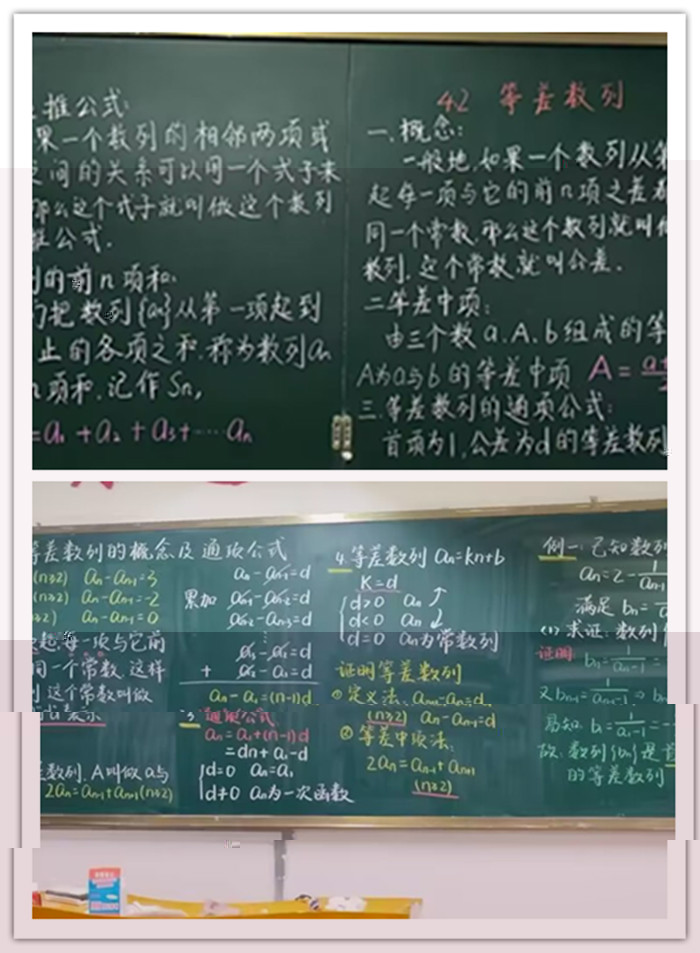 推公式:
果一个数列的相邻两项或
之间的关系可以用一个式子来
那么这个式子就叫做这个数列
推公式.
的前n项和:
把数列{an}从第一项起到
止的各项之和.称为数列an
项和.记作Sn,
=a₁+a₂+a₃+…an
4.2 等差数列
一.概念:
一般地.如果一个数列从第
起每一项与它的前n项之差都
同一个常数.那么这个数列就叫做
数列.这个常数就叫公差.
二等差中项:
由三个数a.A.b组成的等
A为a与b的等差中项 A=
三.等差数列的通项公式:
首项为1.公差为d的等差数列
等差数列的概念及通项公式
(n≥2) an-an-1=3
(n≥2) an-an-1=-2
(n≥2) an-an-1=0
起.每一项与它前
同一个常数.这样
这个常数叫做
表示
差数列.A叫做a与
2an=an-1+an+1(n≥2)
an-an-1=d
累加 an-1-an-2=d
an-2-an-3=d
⋮
a3-a2=d
+ a2-a1=d
an-a1=(n-1)d
3. 通项公式
an=a1+(n-1)d
=dn+a1-d
d=0 an=a1
d≠0 an为一次函数
4.等差数列 an=kn+b
K=d
d>0 an↑
d<0 an↓
d=0 an为常数列
证明等差数列
① 定义法: an+1-an=d
(n≥2) an-an-1=d
② 等差中项法:
2an=an-1+an+1
(n≥2)
例一:已知数列
an=2-1/an-1
满足 bn=
(1)求证:数列
证明 bn=1/an-1=
又bn-1=1/an-1-1
易知 b1=1/a1-1=-
故:数列{bn}是首
的等差数列